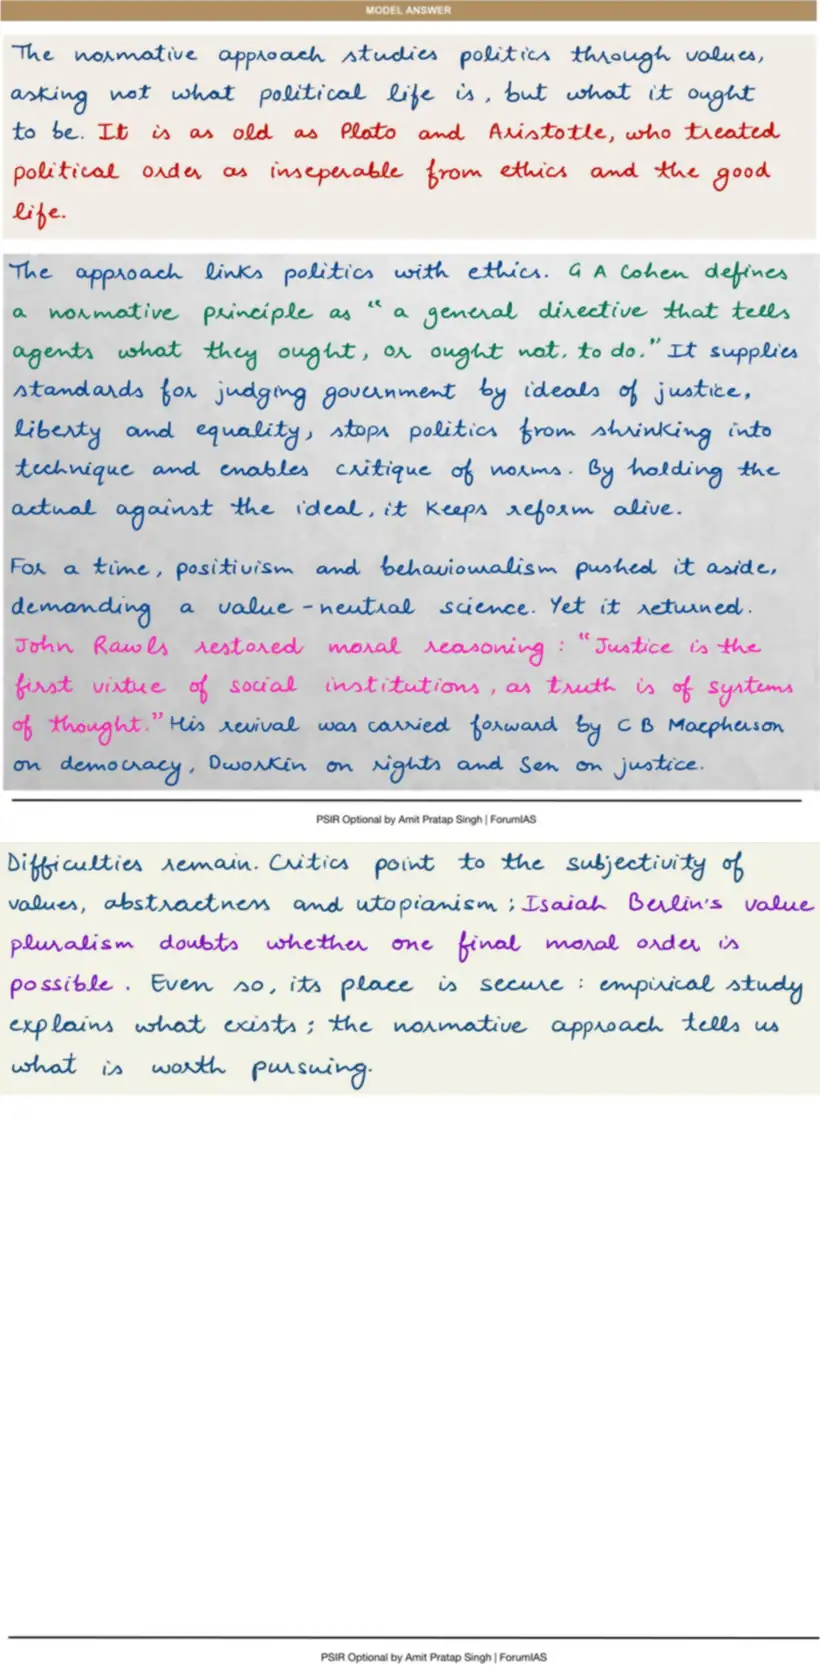 MODEL ANSWER
The normative approach studies politics through values,
asking not what political life is, but what it ought
to be. It is as old as Plato and Aristotle, who treated
political order as inseperable from ethics and the good
life.
The approach links politics with ethics. G A Cohen defines
a normative principle as " a general directive that tells
agents what they ought, or ought not, to do." It supplies
standards for judging government by ideals of justice,
liberty and equality, stops politics from shrinking into
technique and enables critique of norms. By holding the
actual against the ideal, it keeps reform alive.
For a time, positivism and behaviouralism pushed it aside,
demanding a value-neutral science. Yet it returned.
John Rawls restored moral reasoning : "Justice is the
first virtue of social institutions, as truth is of systems
of thought." His revival was carried forward by C B Macpherson
on democracy, Dworkin on rights and Sen on justice.
PSIR Optional by Amit Pratap Singh | ForumIAS
Difficulties remain. Critics point to the subjectivity of
values, abstractness and utopianism ; Isaiah Berlin's value
pluralism doubts whether one final moral order is
possible. Even so, its place is secure : empirical study
explains what exists ; the normative approach tells us
what is worth pursuing.
PSIR Optional by Amit Pratap Singh | ForumIAS